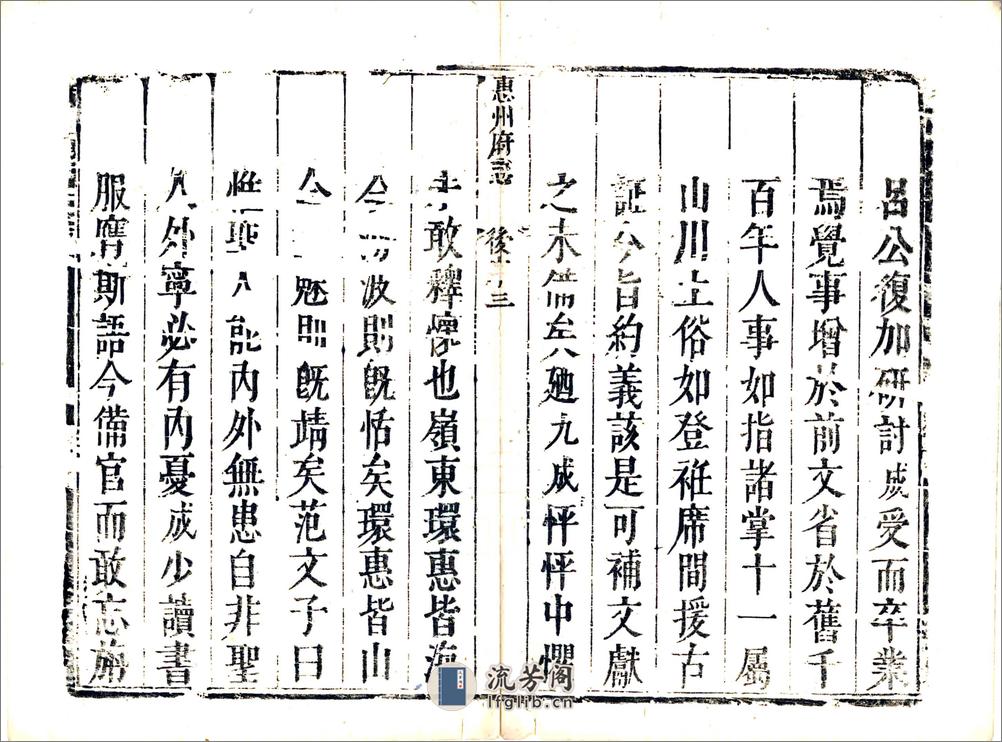 呂公復加研討成受而卒業
焉覺事增於前文省於舊千
百年人事如指諸掌十一屬
山川土俗如登袵席間援古
証今旨約義該是可補文獻
之未備矣廼九成怦怦中懼
惠州府志 後序 三
未敢釋懷也嶺東環惠皆海
今 波則既恬矣環惠皆山
今 魅則既靖矣范文子曰
惟聖人能內外無患自非聖
人外寧必有內憂成少讀書
服膺斯語今備官而敢忘旃
流芳閣
lfglib.cn